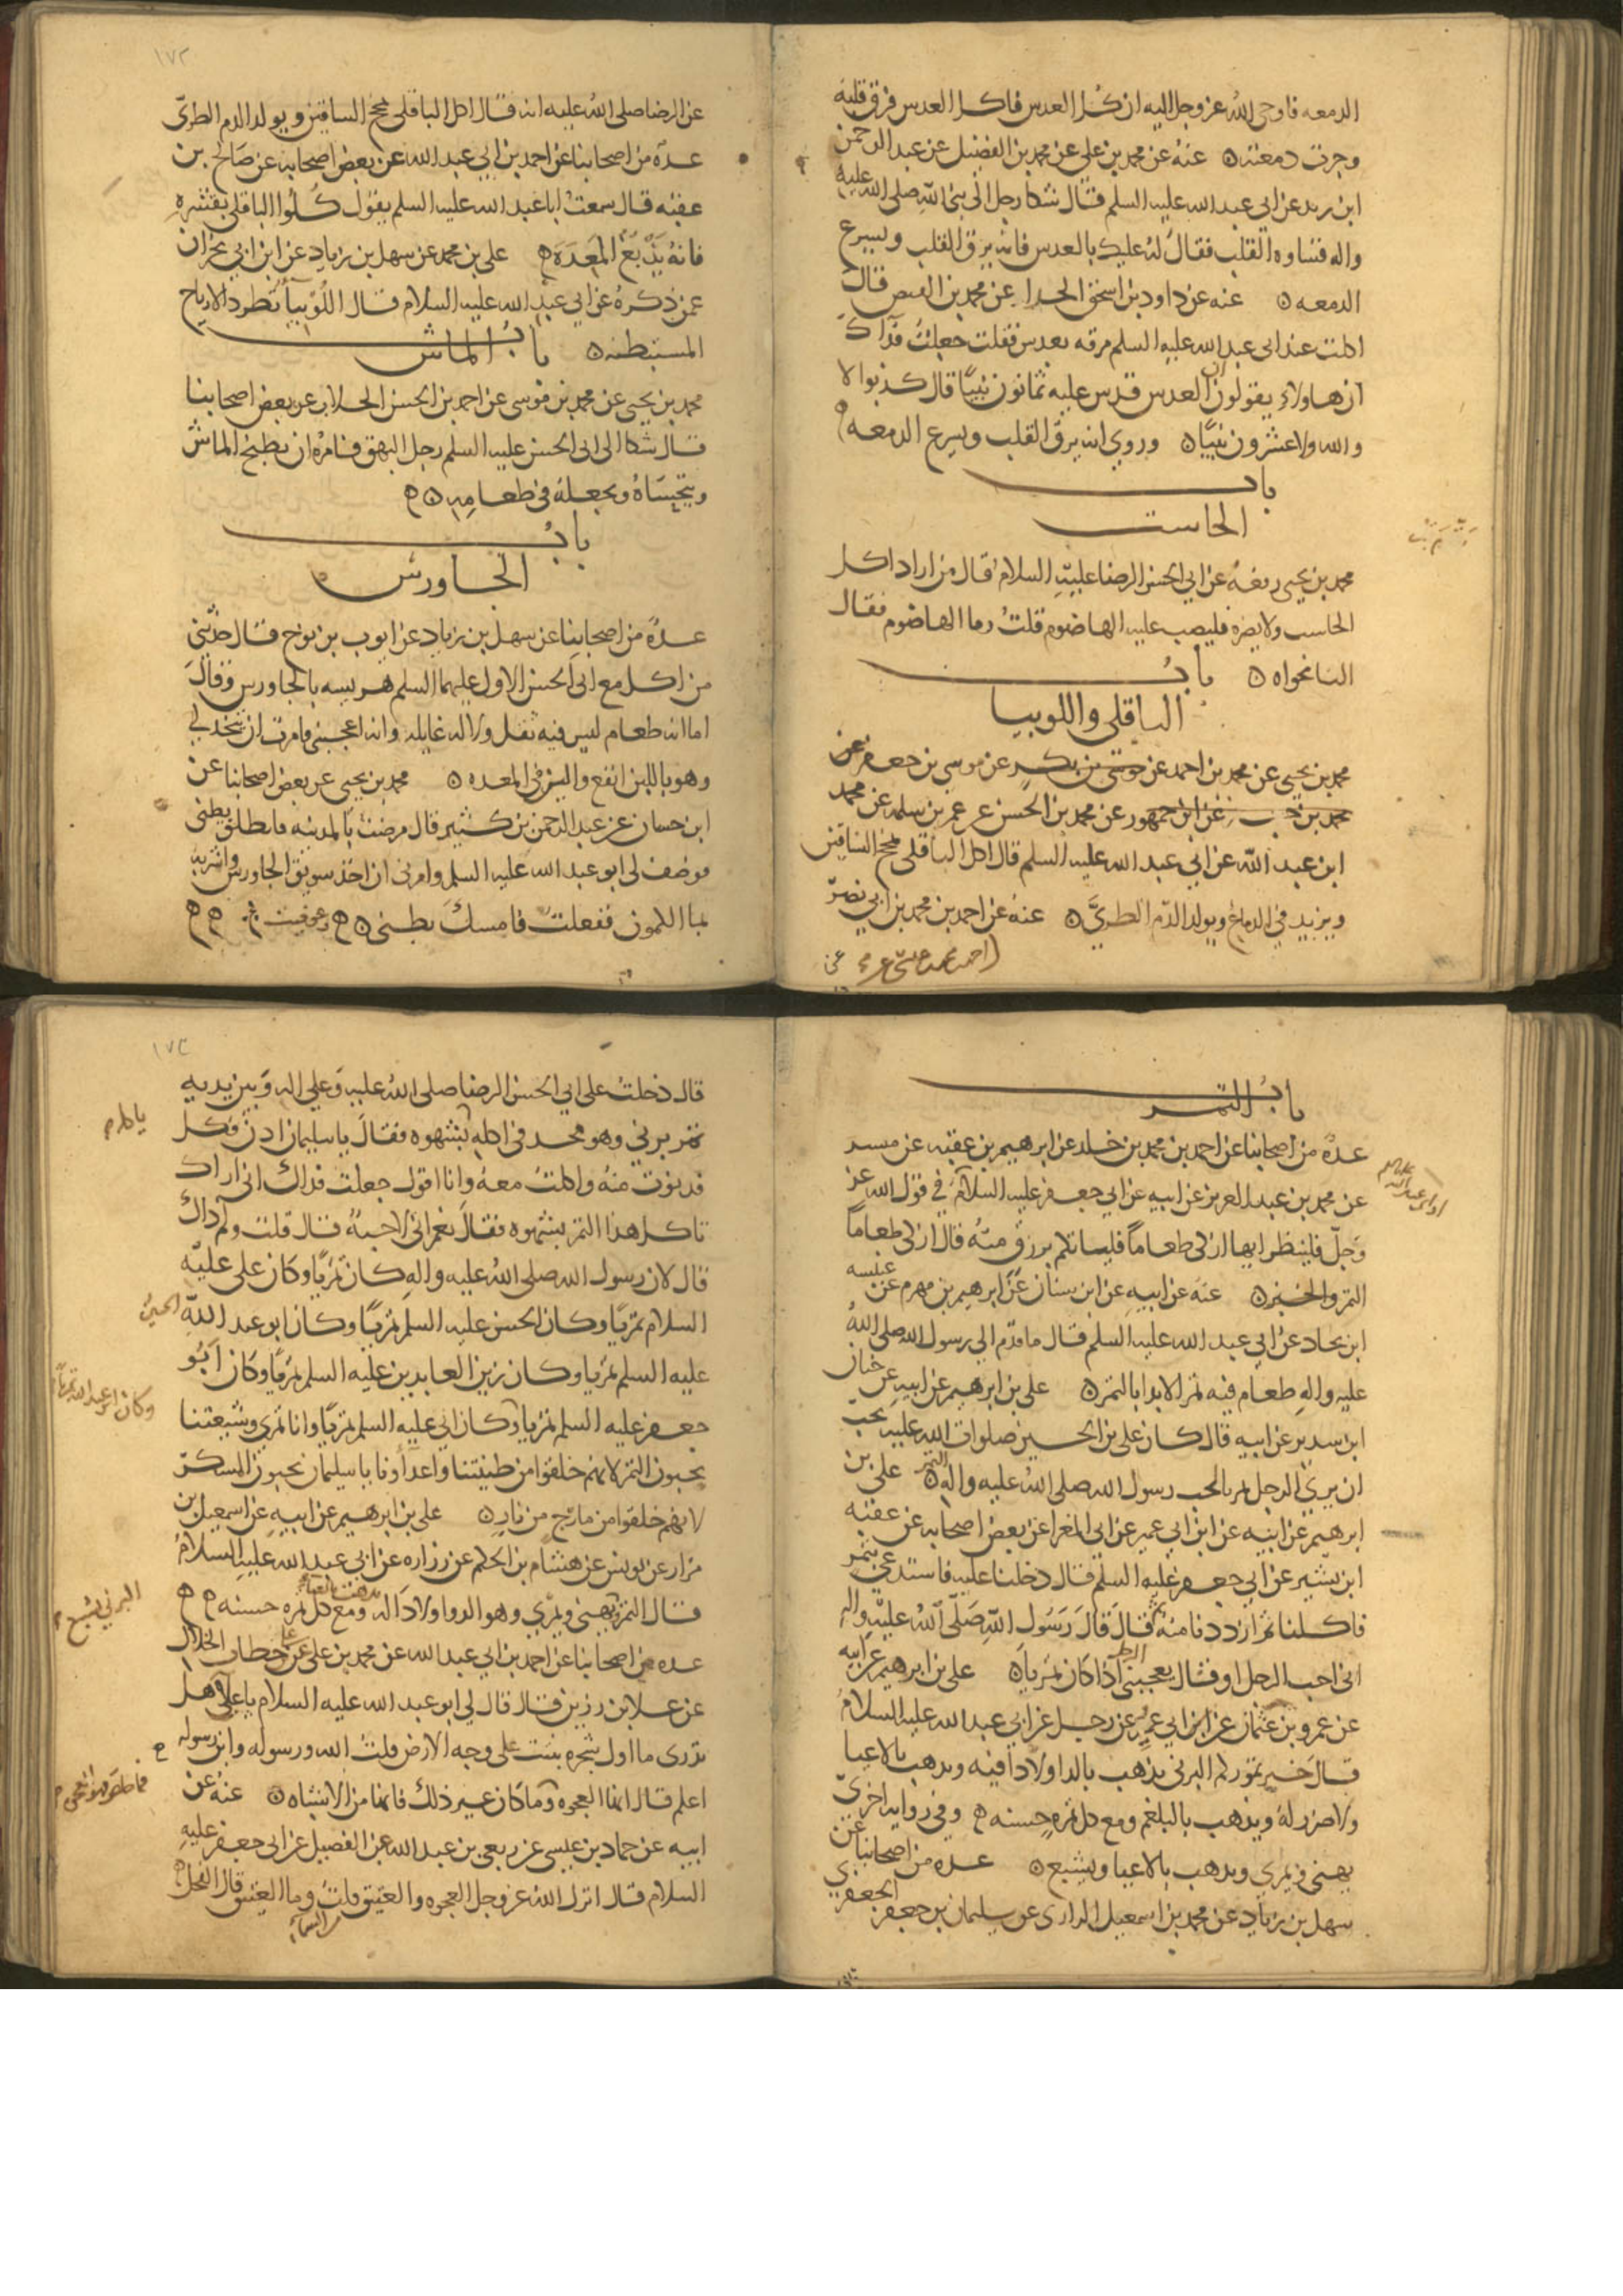 الدمعه فاوحى الله عز وجل اليه ان كل العدس فاكل العدس فرق قلبه
وجرت دمعته ن عنه عن محمد بن علي عن محمد بن الفضيل عن عبد الرحمن
ابن زيد عن ابي عبد الله عليه السلم قال شكا رجل الى نبي الله صلى الله عليه
واله قساوه القلب فقال له عليك بالعدس فانه يرق القلب ويسرع
الدمعه ن عنه عن داود بن اسحق الحذا عن محمد بن الفيض قال
اكلت عند ابي عبد الله عليه السلم مرقه بعدس فقلت جعلت فداك
ان هاولاء يقولون ان العدس قدس عليه ثمانون نبيا قال كذبوا لا
والله ولا عشرون نبيا ن وروي انه يرق القلب ويسرع الدمعه
باب
الحاست
محمد بن يحيى رفعه عن ابي الحسن الرضا عليه السلام قال من اراد اكل
الحاست ولا يضره فليصب عليه الهاضوم قلت وما الهاضوم فقال
النانخواه ن باب
الباقلى واللوبيا
محمد بن يحيى عن محمد بن احمد عن موسى بن بكر عن موسى بن جعفر عن
محمد بن عن ابن جمهور عن محمد بن الحسن عن عمر بن سلمه عن محمد
ابن عبد الله عن ابي عبد الله عليه السلم قال اكل الباقلى يمخ الساقين
ويزيد في الدماغ ويولد الدم الطري ن عنه عن احمد بن محمد بن ابي نصر
١٧٢
عن الرضا صلى الله عليه انه قال اكل الباقلى يمخ الساقين ويولد الدم الطري
عدة من اصحابنا عن احمد بن ابي عبد الله عن بعض اصحابه عن صالح بن
عقبه قال سمعت ابا عبد الله عليه السلم يقول كلوا الباقلى بقشره
فانه يدبغ المعده علي بن محمد عن سهل بن زياد عن ابن ابي نجران
عمن ذكره عن ابي عبد الله عليه السلام قال اللوبيا تطرد الارياح
المستبطنه ن باب الماش
محمد بن يحيى عن محمد بن موسى عن احمد بن الحسن الجلاب عن بعض اصحابنا
قال شكا الى ابي الحسن عليه السلم رجل البهق فامره ان يطبخ الماش
ويتحساه ويجعله في طعامه ن
باب
الجاورس
عدة من اصحابنا عن سهل بن زياد عن ايوب بن نوح قال حدثني
من اكل مع ابي الحسن الاول عليهما السلم هريسه بالجاورس وقال
اما انه طعام ليس فيه ثقل ولا له غايله وانه اعجبني فامرت ان يتخذ لي
وهو باللبن انفع والين في المعده ن محمد بن يحيى عن بعض اصحابنا عن
ابن حسان عن عبد الرحمن بن كثير قال مرضت بالمدينه فانطلق بطني
فوصف لي ابو عبد الله عليه السلم وامرني ان اخذ سويق الجاورس واشربه
بما الكمون ففعلت فامسك بطني ن وعوفيت
باب التمر
عدة من اصحابنا عن احمد بن محمد بن خالد عن ابرهيم بن عقبه عن ميسر
عن محمد بن عبد العزيز عن ابيه عن ابي جعفر عليه السلام في قول الله عز
وجل فلينظر ايها ازكى طعاما فلياتكم برزق منه قال ازكى طعاما
التمر والخبز ن عنه عن ابيه عن ابن سنان عن ابرهيم بن مهزم عن عنبسه
ابن بجاد عن ابي عبد الله عليه السلم قال ما قدم الى رسول الله صلى الله
عليه واله طعام فيه تمر الا بدا بالتمر ن علي بن ابرهيم عن ابيه عن حنان
ابن سدير عن ابيه قال كان علي بن الحسين صلوات الله عليه يحب
ان يرى الرجل تمريا لحب رسول الله صلى الله عليه واله التمر ن علي بن
ابرهيم عن ابيه عن ابن ابي عمير عن ابي المغرا عن بعض اصحابه عن عقبه
ابن بشير عن ابي جعفر عليه السلم قال دخلنا عليه فاستدعى بتمر
فاكلنا ثم ازددنا منه ثم قال قال رسول الله صلى الله عليه واله
اني احب الرجل او قال يعجبني الرجل اذا كان تمريا ن علي بن ابرهيم عن ابيه
عن عمرو بن عثمان عن ابن ابي عمير عن رجل عن ابي عبد الله عليه السلام
قال خير تموركم البرني يذهب بالدا ولا دا فيه ويذهب بالاعيا
ولا ضرر له ويذهب بالبلغم ومع كل تمره حسنه وفي روايه اخرى
يهني ويمري ويذهب بالاعيا ويشبع ن عده من اصحابنا عن
سهل بن زياد عن محمد بن اسمعيل الرازي عن سليمان بن جعفر الجعفري
١٧٣
قال دخلت على ابي الحسن الرضا صلى الله عليه وعلى اله وبين يديه
تمر برني وهو مجد في اكله بشهوه فقال يا سليمان ادن فكل
فدنوت منه واكلت معه وانا اقول جعلت فداك اني اراك
تاكل هذا التمر بشهوه فقال نعم اني لاحبه قال قلت ولم ذاك
قال لان رسول الله صلى الله عليه واله كان تمريا وكان علي عليه
السلام تمريا وكان الحسن عليه السلم تمريا وكان ابو عبد الله
الحسين
عليه السلم تمريا وكان زين العابدين عليه السلم تمريا وكان ابو
وكان ابو عبد الله تمريا
جعفر عليه السلم تمريا وكان ابي عليه السلم تمريا وانا تمري وشيعتنا
يحبون التمر لانهم خلقوا من طينتنا واعداونا يا سليمان يحبون المسكر
لانهم خلقوا من مارج من نار ن علي بن ابرهيم عن ابيه عن اسمعيل بن
مرار عن يونس عن هشام بن الحكم عن زراره عن ابي عبد الله عليه السلام
البرني يشبع
قال التمر يهني ويمري وهو الدوا ولا دا له ومع كل تمره حسنه
عده من اصحابنا عن احمد بن ابي عبد الله عن محمد بن علي عن حطاب الحلال
عن علا بن رزين قال قال لي ابو عبد الله عليه السلام يا علا هل
تدري ما اول شجره نبتت على وجه الارض قلت الله ورسوله وابن رسوله
اعلم قال انها العجوه وما كان غير ذلك فانما من الاشباه ن عنه عن
ابيه عن حماد بن عيسى عن ربعي بن عبد الله عن الفضيل عن ابي جعفر عليه
السلام قال انزل الله عز وجل العجوه والعتيق قلت وما العتيق قال الفحل
من السماء